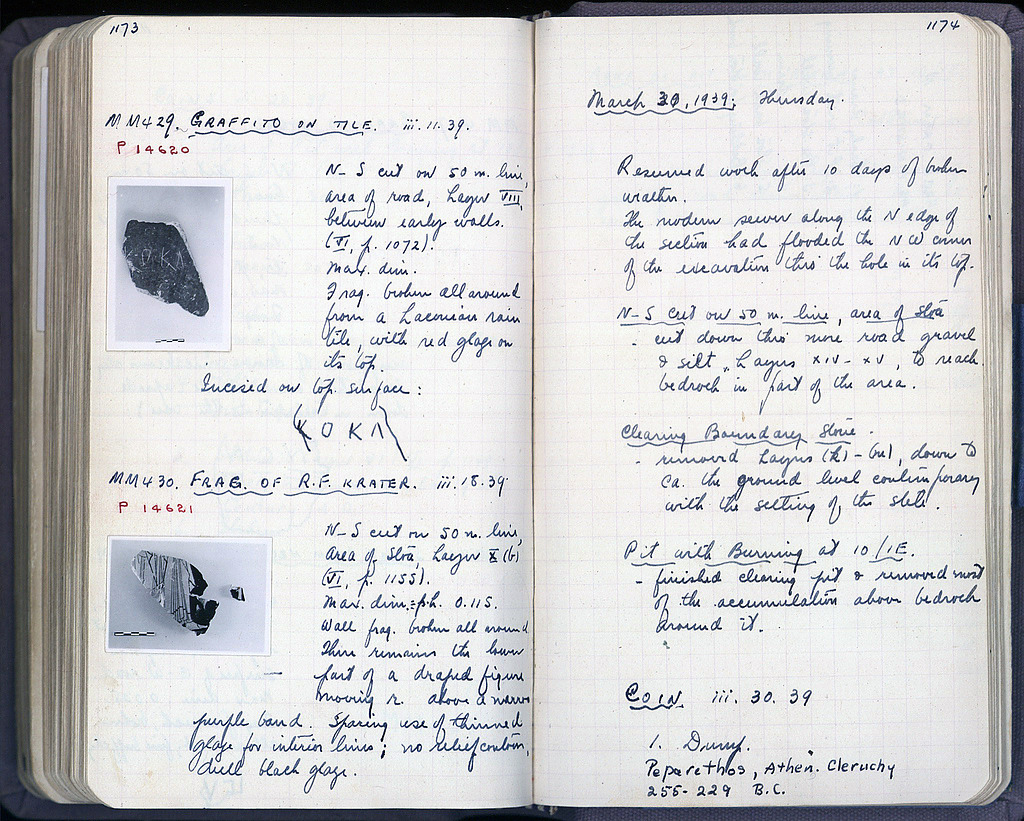 1173
MM429. GRAFFITO ON TILE. iii.11.39.
P 14620
N-S cut on 50 m. line,
area of road, Layer VIII,
between early walls.
(VI, p. 1072).
Max. dim.
Frag. broken all around
from a Laconian rain
tile, with red glaze on
its top.
Incised on top surface:
KOKΛ
MM430. FRAG. OF R.F. KRATER. iii.18.39.
P 14621
N-S cut on 50 m. line,
Area of Stoa, Layer X (b)
(VI, p. 1155).
Max. dim. = p.h. 0.115.
Wall frag. broken all around.
There remains the lower
part of a draped figure
moving r. above a narrow
purple band. Sparing use of thinned
glaze for interior lines; no relief contour,
dull black glaze.
1174
March 30, 1939; Thursday.
Resumed work after 10 days of broken
weather.
The modern sewer along the N edge of
the section had flooded the NW corner
of the excavation thro' the hole in its top.
N-S cut on 50 m. line, area of Stoa
- cut down thro' more road gravel
& silt, Layers XIV - XV, to reach
bedrock in part of the area.
Clearing Boundary Stone.
- removed Layers (k) - (m), down to
ca. the ground level contemporary
with the setting of the stele.
Pit with Burning at 10/ΙΕ.
- finished clearing pit & removed most
of the accumulation above bedrock
around it.
COIN iii. 30. 39
1. Dump.
Peparethos, Athen. Cleruchy
255-229 B.C.